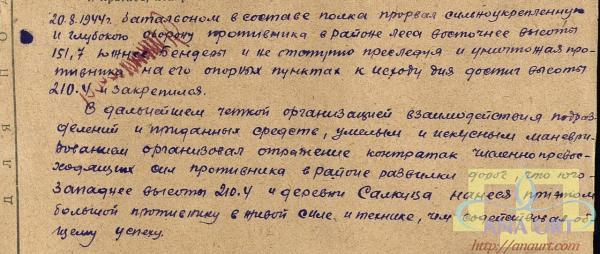 20.8.1944г. батальоном в составе полка прорвал сильноукрепленную
и глубокою оборону противника в районе леса восточнее высоты
151,7 южнее Бендеры и не отступно преследуя и уничтожая про-
тивника на его опорных пунктах к исходу дня достиг высоты
210.4 и закрепился.
В дальнейшем четкой организацией взаимодействия подраз-
делений и приданных средств, умелым и искусным маневри-
дованием организовал отражение контратак численно превос-
ходящих сил противника в районе развилки дорог, что юго-
западнее высоты 210.4 и деревни Салкуца нанеся при этом
большой противнику в живой силе и технике, чем содействовал об-
щему успеху.
ANA URT
http://anaurt.com